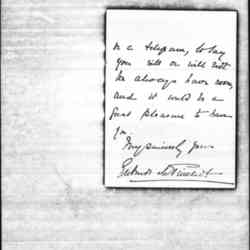 in a telegram, to say
you will or will not
We always have room,
and it would be a
great pleasure to have
you.
Very sincerely yours
Gertrude